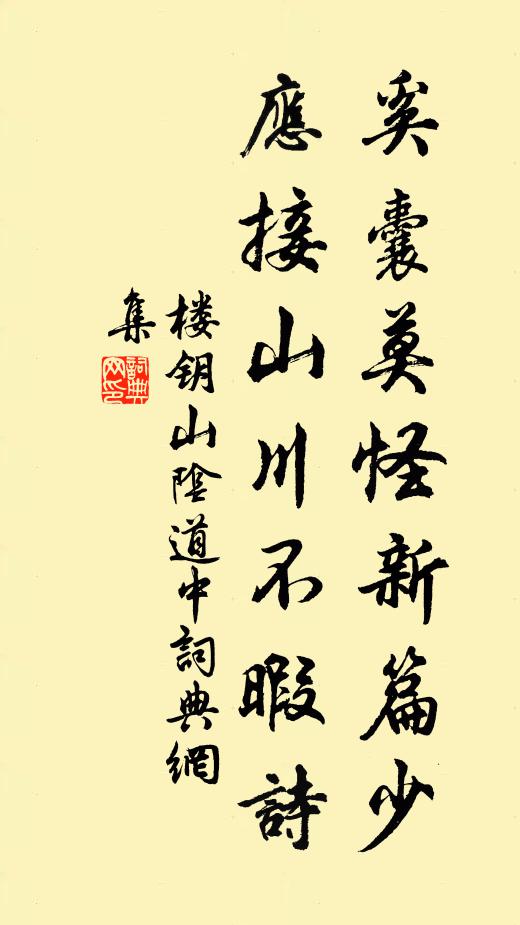 奚囊莫怪新篇少
應接山川不暇詩
楼钥山陰道中詞典網
集
詞典
网印